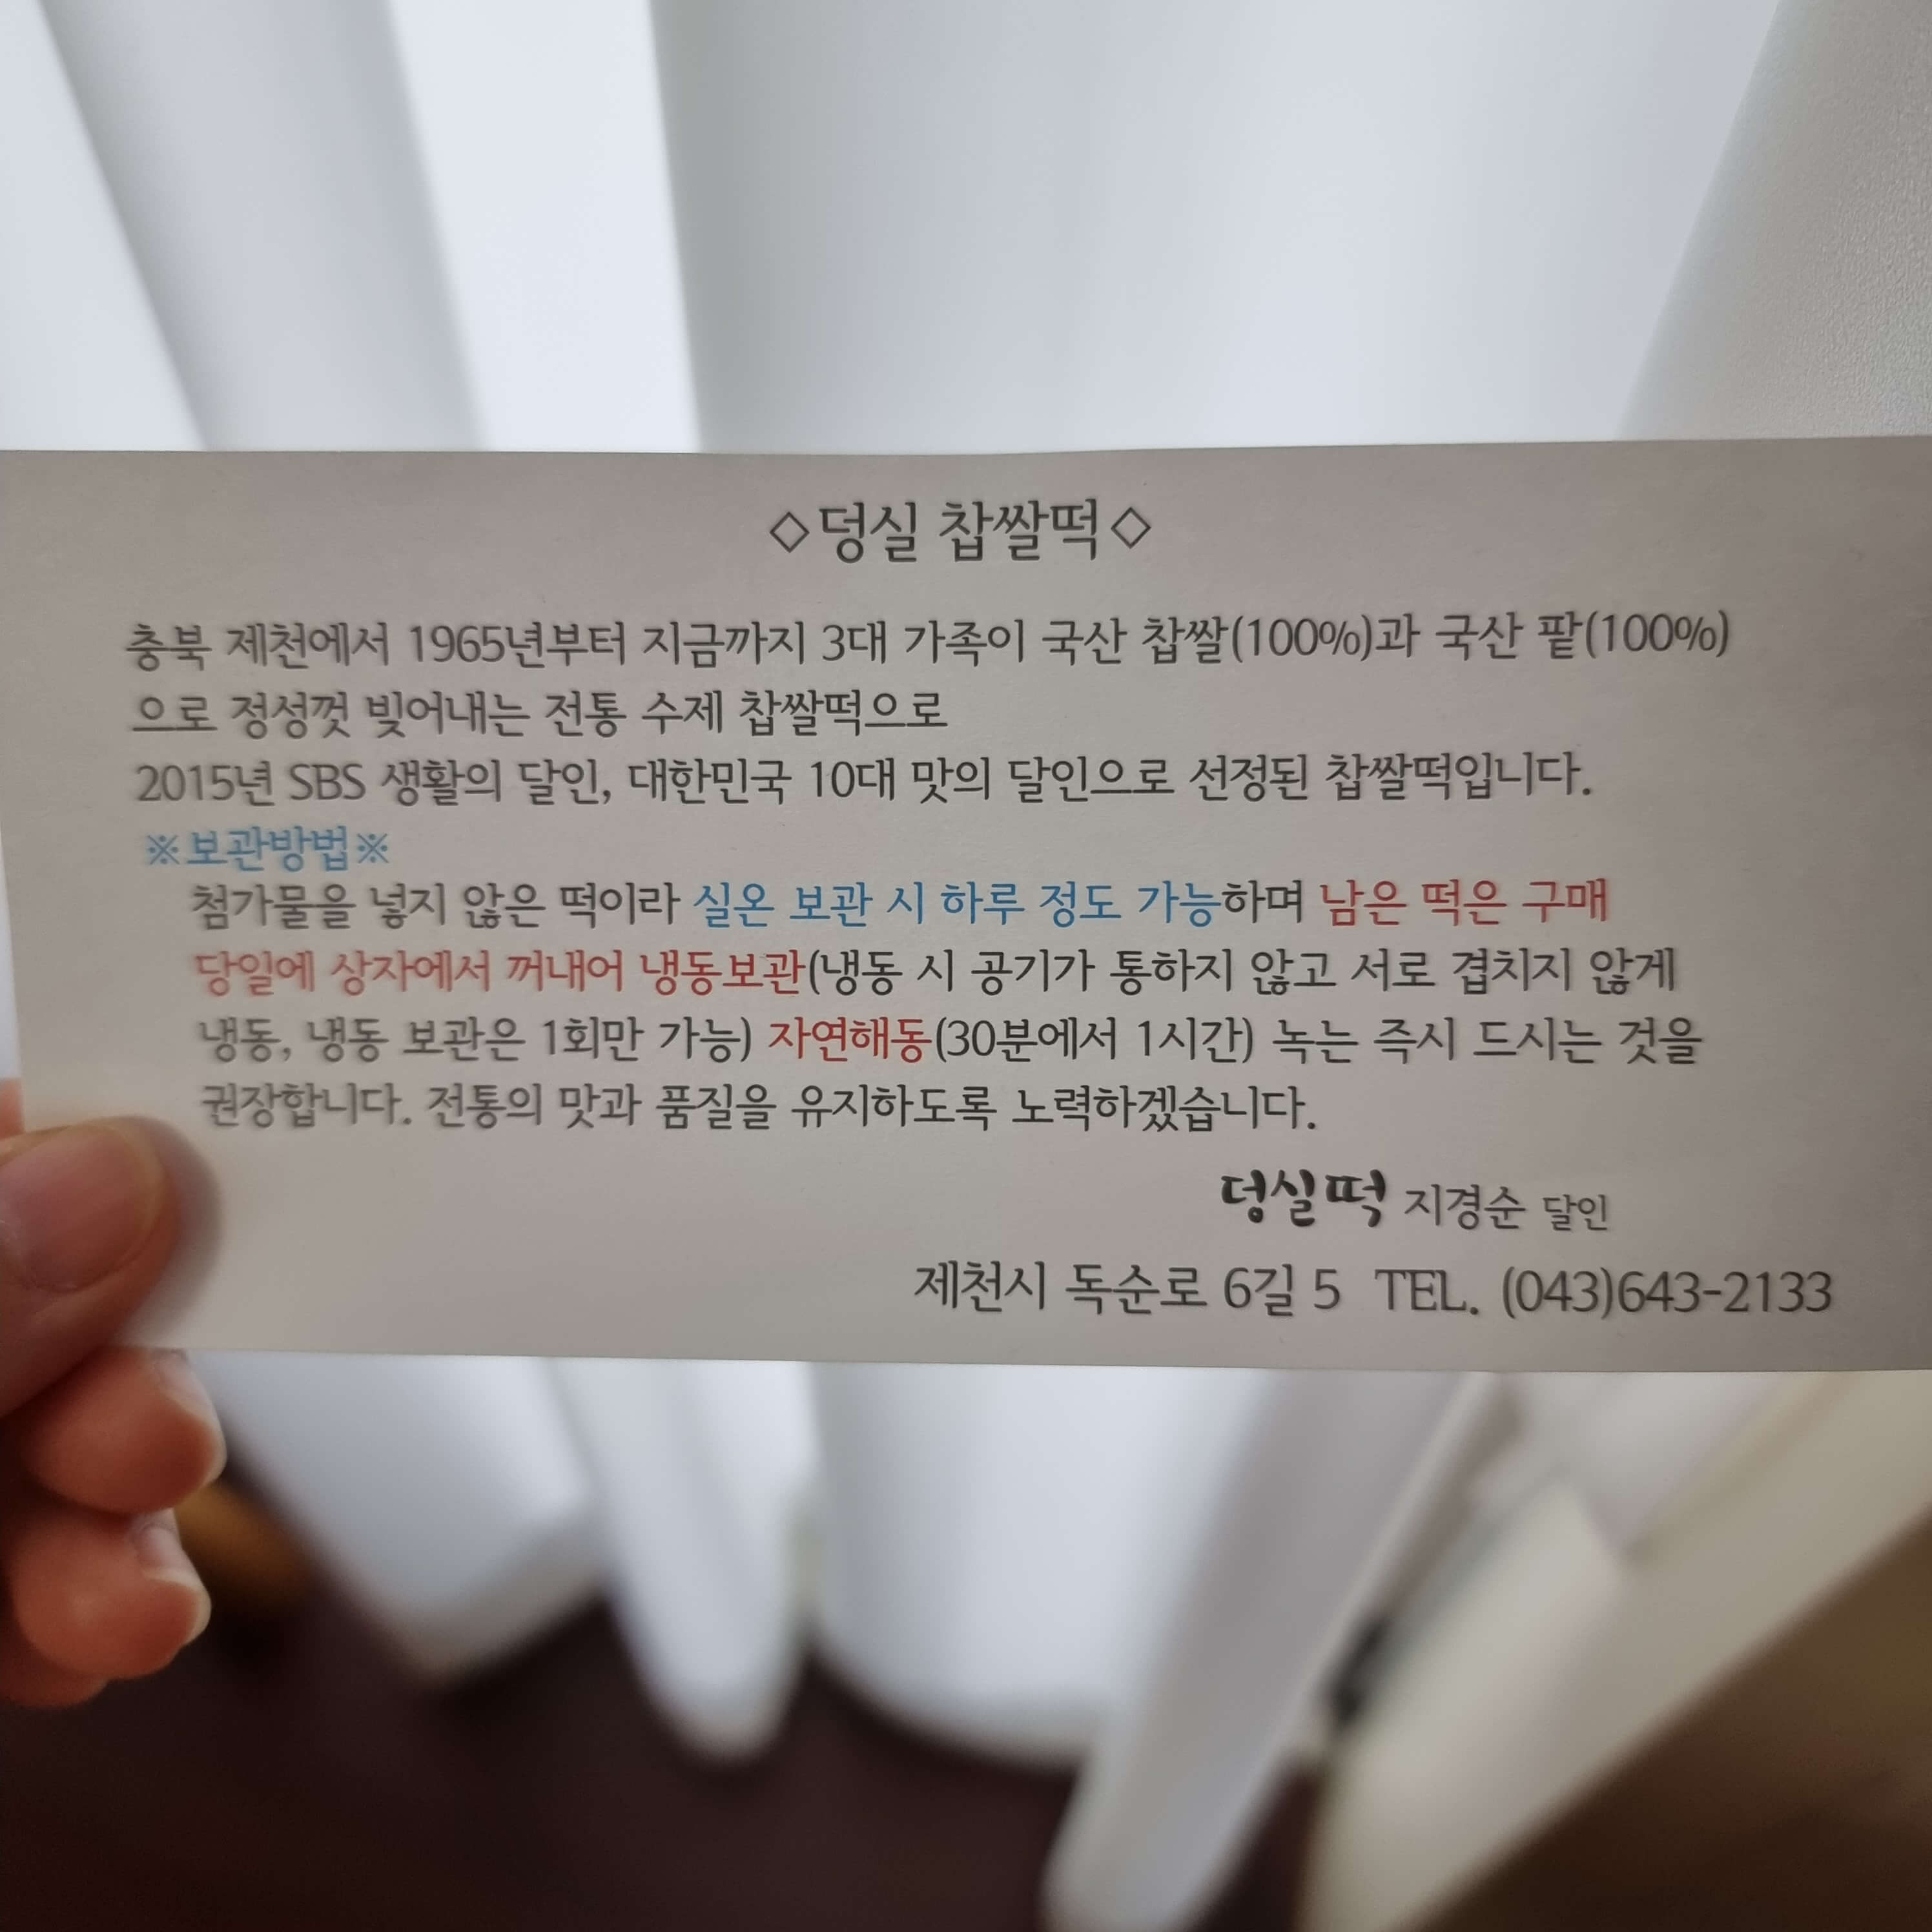 ◇덩실 찹쌀떡◇
충북 제천에서 1965년부터 지금까지 3대 가족이 국산 찹쌀(100%)과 국산 팥(100%)
으로 정성껏 빚어내는 전통 수제 찹쌀떡으로
2015년 SBS 생활의 달인, 대한민국 10대 맛의 달인으로 선정된 찹쌀떡입니다.
※보관방법※
첨가물을 넣지 않은 떡이라 실온 보관 시 하루 정도 가능하며 남은 떡은 구매
당일에 상자에서 꺼내어 냉동보관(냉동 시 공기가 통하지 않고 서로 겹치지 않게
냉동, 냉동 보관은 1회만 가능) 자연해동(30분에서 1시간) 녹는 즉시 드시는 것을
권장합니다. 전통의 맛과 품질을 유지하도록 노력하겠습니다.
덩실떡 지경순 달인
제천시 독순로 6길 5 TEL. (043)643-2133